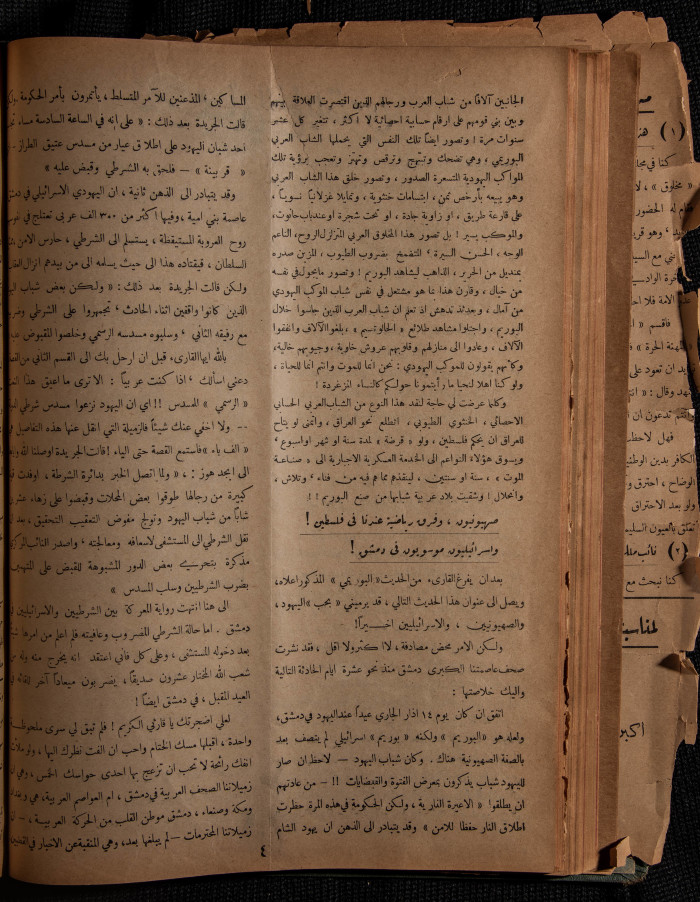 الجانبين آلافاً من شباب العرب ورجالهم الذين اقتصرت العلاقة بينهم
وبين بني قومهم على ارقام حسابية احصائية لا اكثر ، تتغير كل عشر
سنوات مرة ! وتصور ايضاً تلك النفس التي يحملها الشاب العربي
البوريمي ، وهي تضحك وتبتهج وترقص وتهتز وتعجب برؤية تلك
المواكب اليهودية المتسعرة الصدور ، وتصور خلق هذا الشاب العربي
وهو يبيعه بأرخص ثمن ، ابتسامات خنثوية ، وتمايلا غزلانياً نسوياً ،
على قارعة طريق ، او زاوية جادة ، او تحت شجرة او عند باب حانوت،
والموكب يسير ! بل تصور هذا المخلوق العربي المتزلزل الروح، الناعم
الوجه ، الحسن السيرة ‘ المتضمخ بضروب الطيوب ، المزين صدره
بمنديل من الحرير ، الذاهب ليشاهد البوريم ! وتصور ما يجول في نفسه
من خيال ، وقارن هذا بما هو مشتعل في نفس شباب الموكب اليهودي
من آمال ، وعندئذ تدهش اذ تعلم ان شباب العرب الذين جلسوا خلال
البوريم ، واجتلوا مشاهد طلائع « الجالوتسيم » ، بلغوا الآلاف وانفقوا
الآلاف ، وعادوا الى منازلهم وقلوبهم عروش خاوية ، وجيوبهم خالية،
وكأنهم يقولون للموكب اليهودي : نحن انما للموت وانتم انما للحياة ،
ولو كنا اهلا لنحيا ما رأيتمونا حولكم كالنساء المزغردة !
وكلما عرضت لي حاجة لنقد هذا النوع من الشباب العربي الحسابي
الاحصائي ، الخنثوي الطيوبي ، اتطلع نحو العراق ، واتمنى لو يتاح
للعراق ان يحكم فلسطين ، ولو « قرضة » لمدة سنة او شهر او اسبوع ‘
ويسوق هؤلاء النواعم الى الخدمة العسكرية الاجبارية الى « صناعة
الموت » ، سنة او سنتين ، لينقذهم مما هم فيه من فناء ‘ وتلاش ،
وانحلال ! وشقيت بلاد عربية شبابها من صنع البوريم ! !
صهيونيون ، وفرق رياضية عندنا في فلسطين !
واسرائيليون موسويون في دمشق !
بعد ان يفرغ القارىء من الحديث « البوريمي » المذكور اعلاه،
ويصل الى عنوان هذا الحديث التالي ، قد يرميني « بحب » اليهود ،
والصهيونيين ، والاسرائيليين اخيراً !
ولكن الامر محض مصادفة، لا اكثر ولا اقل ، فقد نشرت
صحف عاصمتنا الكبرى دمشق منذ نحو عشرة ايام الحادثة التالية
واليك خلاصتها :
اتفق ان كان يوم ١٤ اذار الجاري عيداً عند اليهود في دمشق،
ولعله هو « البوريم » ولكنه « بوريم » اسرائيلي لم يتصف بعد
بالصفة الصهيونية هناك . وكان شباب اليهود — لاحظ ان صار
لليهود شباب يذكرون بمعرض الفتوة والقبضايات !! — من عادتهم
ان يطلقوا « الاعيرة النارية ، ولكن الحكومة في هذه المرة حظرت
اطلاق النار حفظا للامن » وقد يتبادر الى الذهن ان يهود الشام
المساكين ‘ المذعنين للآمر المتسلط ، يأتمرون بأمر الحكومة
قالت الجريدة بعد ذلك : « على انه في الساعة السادسة مساء
احد شبان اليهود على اطلاق عيار من مسدس عتيق الطراز
« قرينة » — فلحق به الشرطي وقبض عليه »
وقد يتبادر الى الذهن ثانية ، ان اليهودي الاسرائيلي في دمشق
عاصمة بني امية ، وفيها اكثر من ٣٠٠ الف عربي تعتلج في
روح العروبة المستيقظة ، يستسلم الى الشرطي ، حارس الامن
السلطان ، فيقتاده هذا الى حيث يسلمه الى من بيدهم انزال
ولكن قالت الجريدة بعد ذلك : « ولكن بعض شباب
الذين كانوا واقفين اثناء الحادث ‘ تجمهروا على الشرطي
مع رفيقه الثاني ‘ وسلبوه مسدسه الرسمي وخلصوا المقبوض
بالله ايها القارىء قبل ان ارحل بك الى القسم الثاني من
دعني اسألك ‘ اذا كنت عربياً : الا ترى ما اعبق هذا
« الرسمي » المسدس !! اي ان اليهود نزعوا مسدس شرطي
ولا اخفي عنك شيئاً فالزميلة التي انقل عنها هذه التفاصيل
« الف باء » فاستمع القصة حتى الياء ! قالت الجريدة اوصلنا الله
الى ابجد هوز : ، « ولما اتصل الخبر بدائرة الشرطة ، اوفدت
كبيرة من رجالها طوقوا بعض المحلات وقبضوا على زهاء
شاباً من شباب اليهود وتولج مفوض التعقيب التحقيق ، بعد
نقل الشرطي الى المستشفى لاسعافه ومعالجته ‘ واصدر النائب
مذكرة بتحريـي بعض الدور المشبوهة للقبض على المتهمين
بضرب الشرطيين وسلب المسدس »
الى هنا انتهت رواية المعركة بين الشرطيين والاسرائيليين
دمشق . اما حالة الشرطي المضروب وعافيته فلم اعلم من امرها
بعد دخوله للمستشفى ، وعلى كل فاني اعتقد انه يخرج منه
شعب الله المختار عشرون صديقاً ، يضربون ميعاداً آخر للقائه
العيد المقبل ، في دمشق ايضاً !
لعلي اضجرتك يا قارئي الكريم ! فلم تبق لي سوى ملحوظة
واحدة ، اقبلها مسك الختام واحب ان الفت نظرك اليها ،
انفك رائحة لا تحب ان تزعج بها احدى حواسك الخمس ،
زميلاتنا الصحف العربية في دمشق ، ام العواصم العربية ،
ومكة وصنعاء ، دمشق موطن القلب من الحركة العربية ،
زميلاتنا المحترمات — لم يبلغها بعد ، وهي المنقبة عن الاخبار في
٤
(١)
(٢)